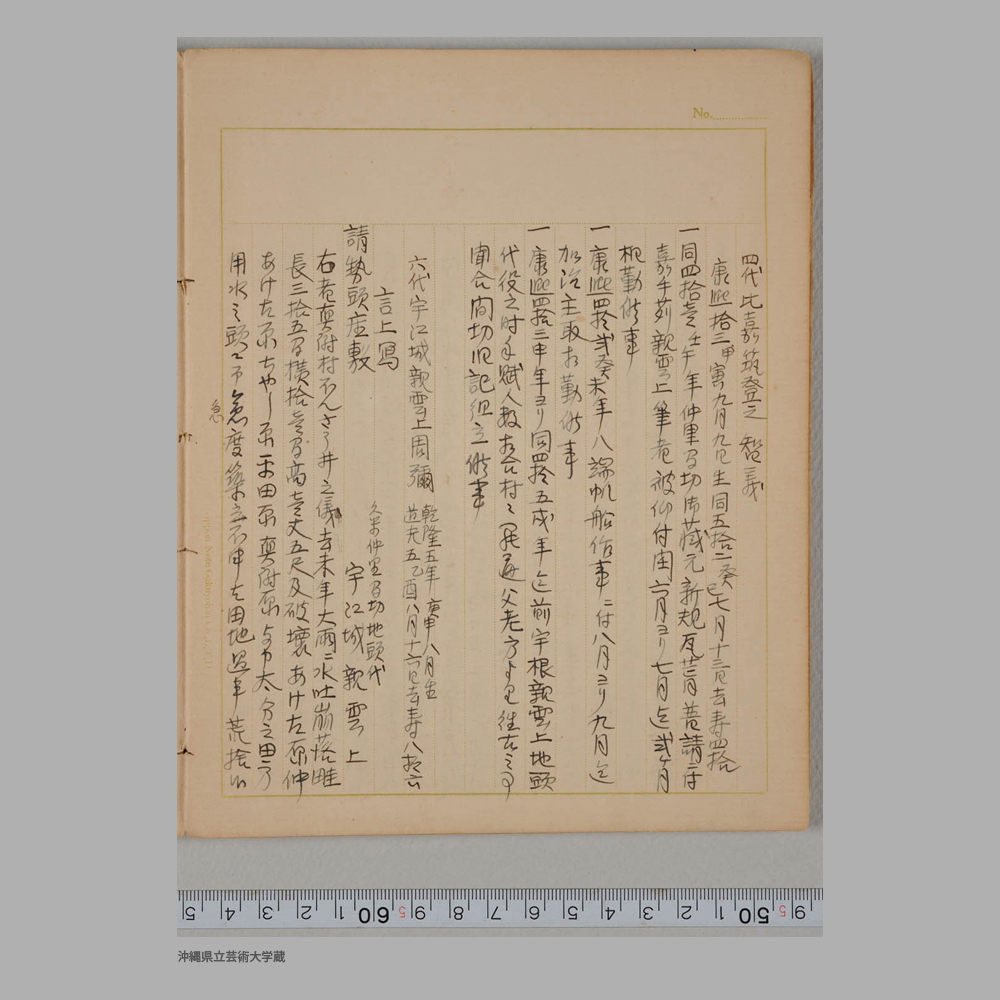 No.
四代比嘉筑登之 智義
康熙拾三甲寅九月九日生同五拾二癸巳七月十三日去寿四拾
一同四拾壱壬午年仲里間切御蔵元新規瓦葺普請ニ付
嘉手苅親雲上筆者被仰付閏六月ヨリ七月迄弐ヶ月
相勤候事
一康熙四拾弐癸未年八端帆船作事ニ付八月ヨリ九月迄
加治主取相勤候事
一康熙四拾三申年ヨリ同四拾五戌年迄前宇根親雲上地頭
代役之時手賦人数相合村々罷通父老方より往古之事
聞合間切旧記組立候事
六代宇江城親雲上周彌 乾隆五年庚申八月生
道光五乙酉八月十六日去寿八拾六
言上写
久米仲里間切地頭代
宇江城親雲上
請勢頭座敷
右者真謝村不んさう井之儀去未年大雨ニ水吐崩落畦
長三拾五間横拾壱間高壱丈五尺及破壊あけた原仲
あけた原ちやし原平田原真謝原与中太分之田方
用水之頭ニ而急度築立不申者田地過半荒捨候
急
沖縄県立芸術大学蔵